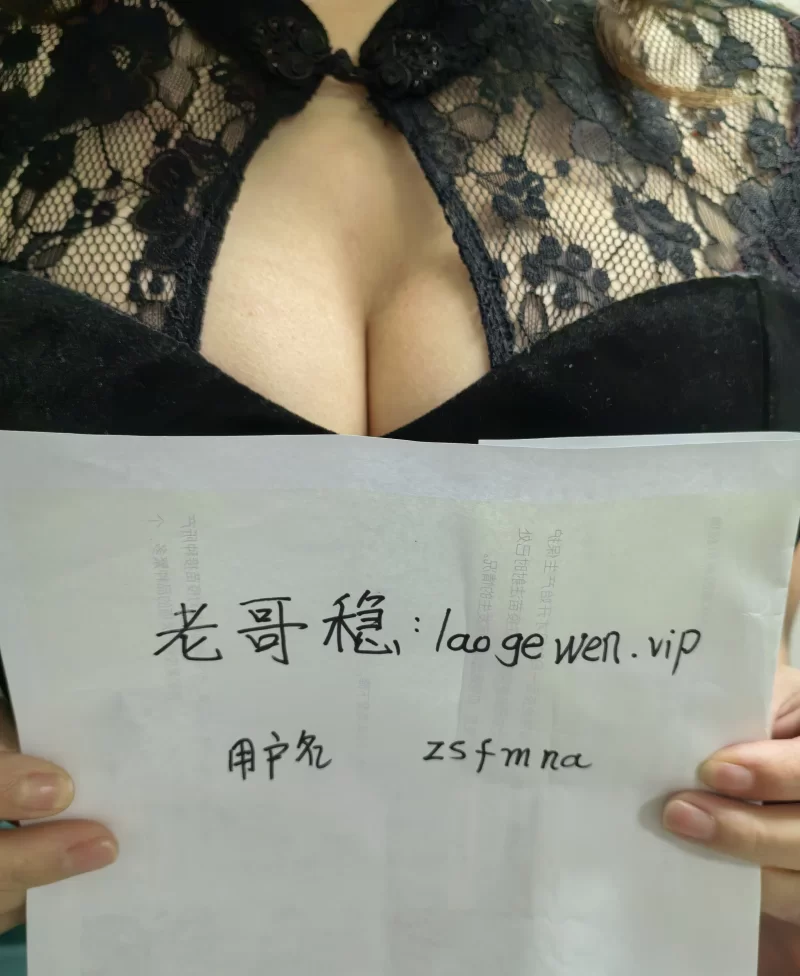 老哥稳:laogewen.vip
用户名 zsfmna